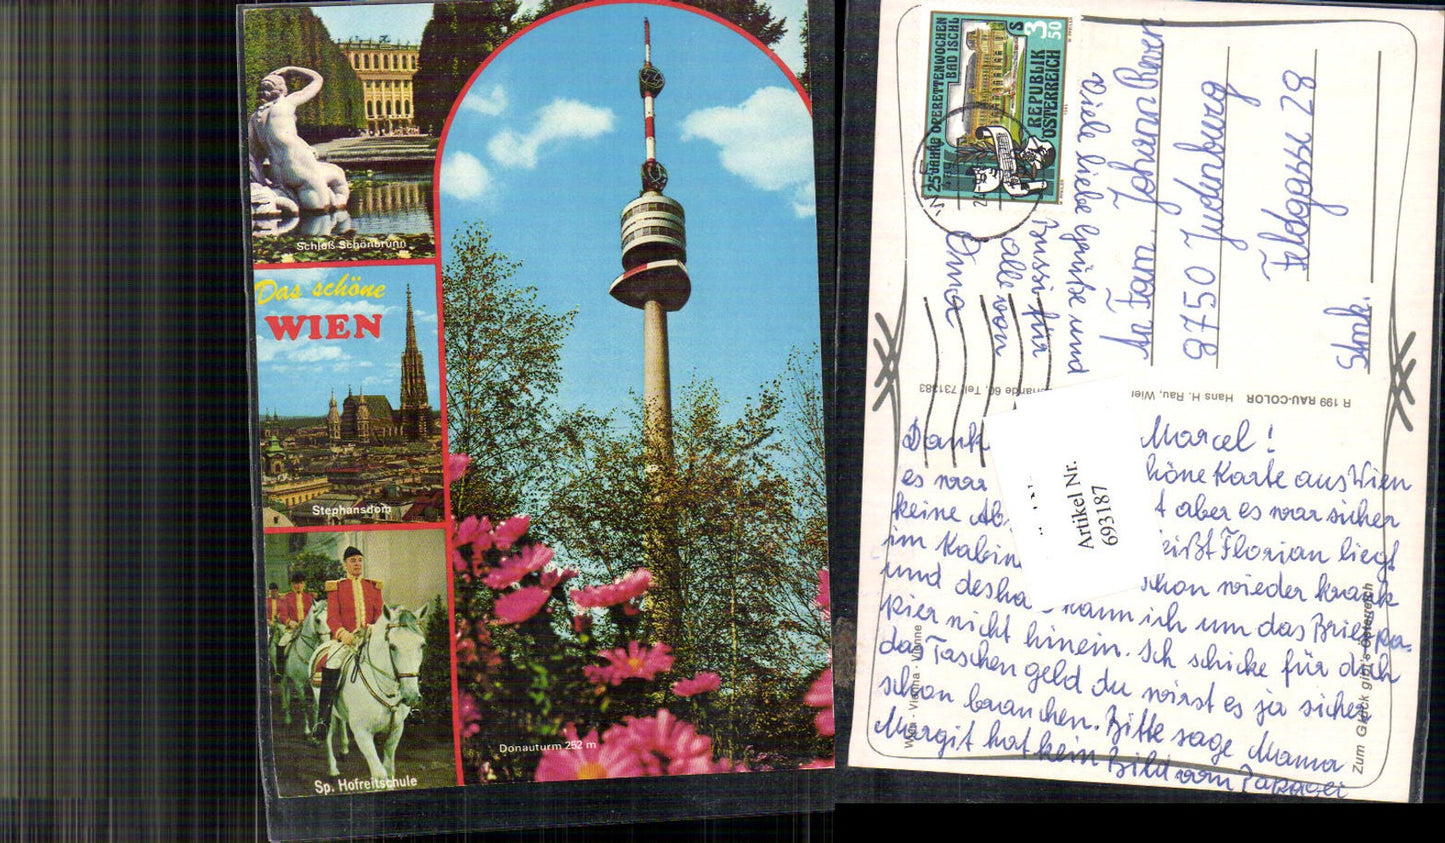 Schloß Schönbrunn
Das schöne
WIEN
Stephansdom
Sp. Hofreitschule
Donauturm 252 m
25 JAHRE OPERETTENWOCHEN
BAD ISCHL
REPUBLIK
ÖSTERREICH
S 3 50
WIEN
An Fam. Johann
8750 Judenburg
Feldgasse 28
Stmk.
Viele liebe Grüße und
Bussi für
alle von
Oma
R 199 RAU-COLOR Hans H. Rau, Wien
60, Tel. 731383
Artikel Nr.
693187
Dank Marcel!
es war höne Karte aus Wien
keine t aber es war sicher
im Florian liegt
und desha kann ich chon wieder krank
nicht hinein. um das Briefpa-
pier Ich schicke für dich
das Taschengeld du wirst es ja sicher
schon brauchen. Bitte sage Mama
Margit hat kein Bild vom Papagei
Wien - Vienna - Vienne
Zum Glück gibt's Österreich